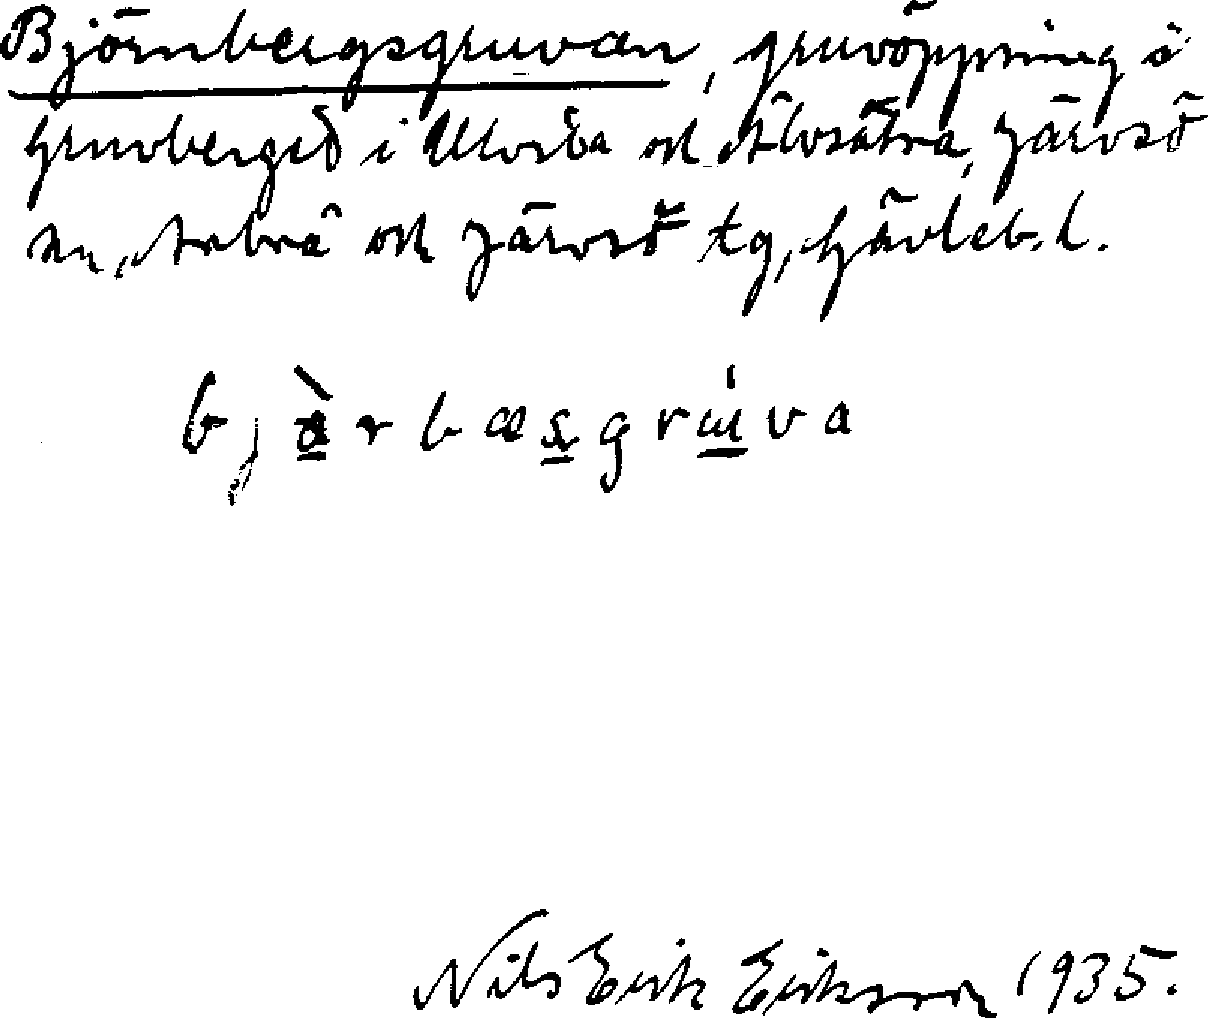 Björnbergsgruvan, gruvöppning å
Gruvberget i Ulvsta och Älvsätra, Järvsö
sn, Arbrå och Järvsö tg, Gävleb. l.
bjàrbæsgrúva
Nils Erik Eriksson 1935.